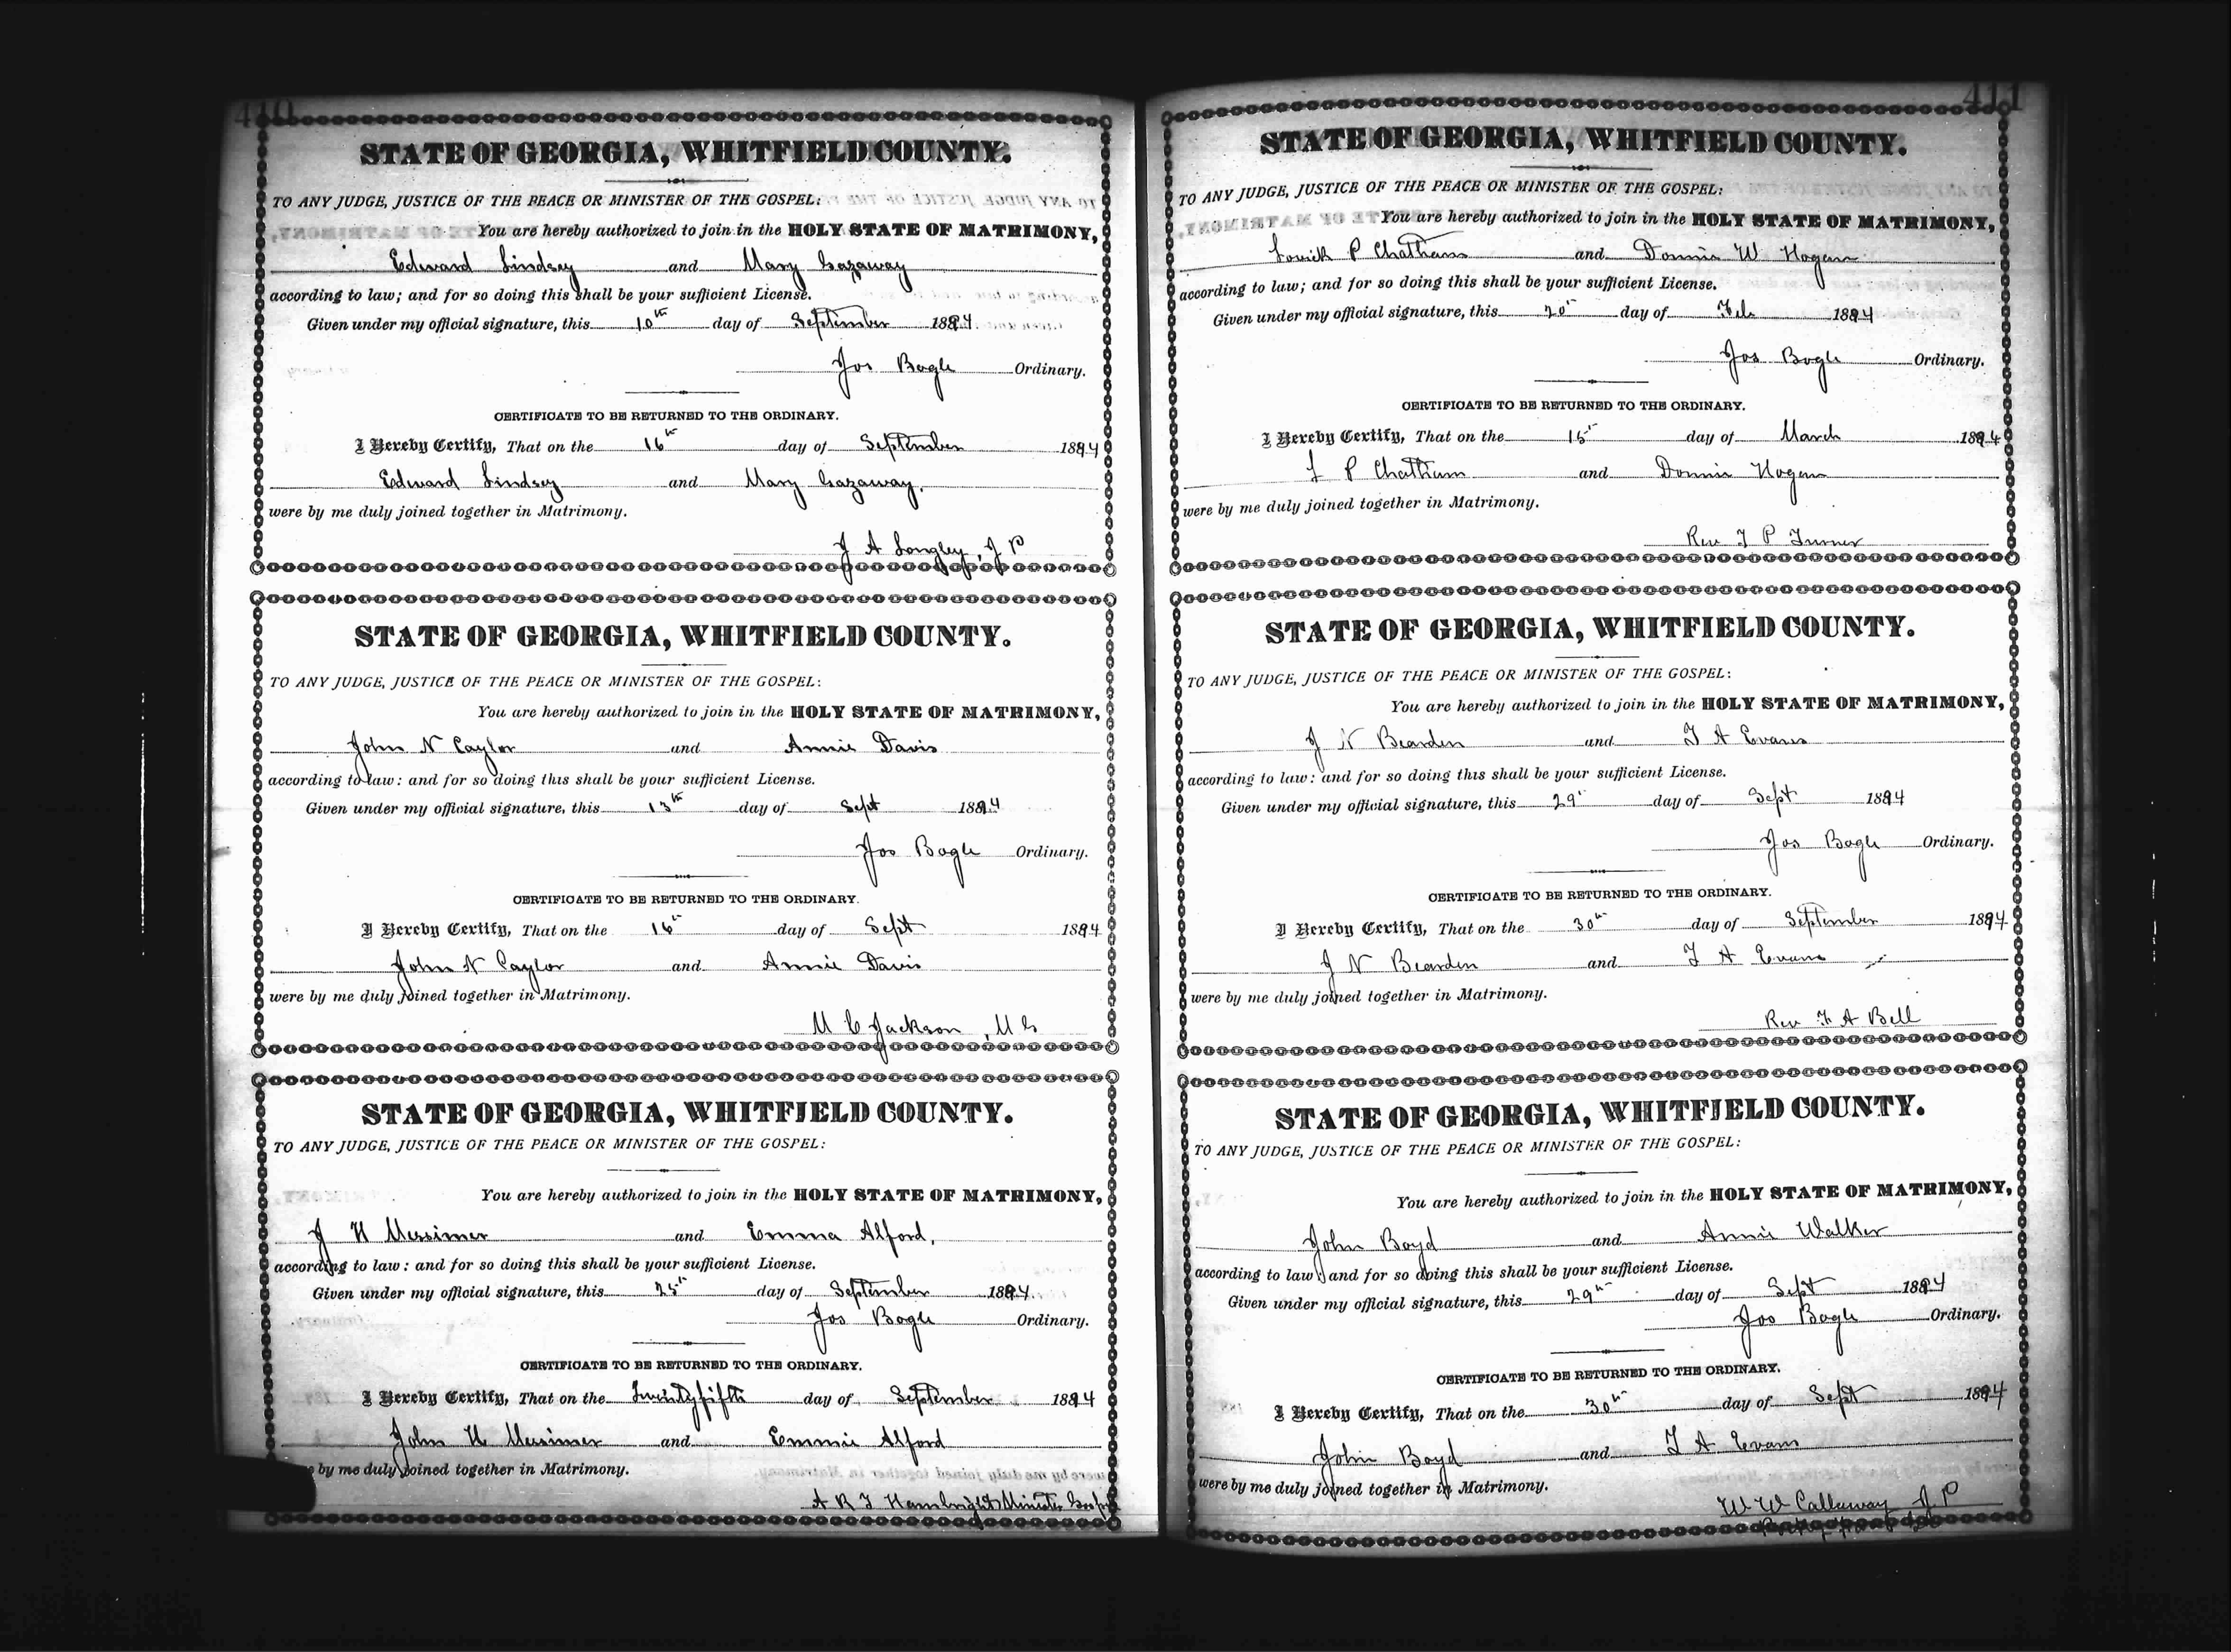 410
STATE OF GEORGIA, WHITFIELD COUNTY.
TO ANY JUDGE, JUSTICE OF THE PEACE OR MINISTER OF THE GOSPEL:
You are hereby authorized to join in the HOLY STATE OF MATRIMONY,
Edward Lindsey and Mary Gazaway
according to law; and for so doing this shall be your sufficient License.
Given under my official signature, this 10th day of September 1894.
Jos Bogle Ordinary.
CERTIFICATE TO BE RETURNED TO THE ORDINARY.
I Hereby Certify, That on the 16th day of September 1894
Edward Lindsey and Mary Gazaway.
were by me duly joined together in Matrimony.
J A Longley, J P
STATE OF GEORGIA, WHITFIELD COUNTY.
TO ANY JUDGE, JUSTICE OF THE PEACE OR MINISTER OF THE GOSPEL:
You are hereby authorized to join in the HOLY STATE OF MATRIMONY,
John N Caylor and Annie Davis
according to law: and for so doing this shall be your sufficient License.
Given under my official signature, this 13th day of Sept 1894
Jos Bogle Ordinary.
CERTIFICATE TO BE RETURNED TO THE ORDINARY.
I Hereby Certify, That on the 16th day of Sept 1894
John N Caylor and Annie Davis
were by me duly joined together in Matrimony.
M C Jackson, M G
STATE OF GEORGIA, WHITFIELD COUNTY.
TO ANY JUDGE, JUSTICE OF THE PEACE OR MINISTER OF THE GOSPEL:
You are hereby authorized to join in the HOLY STATE OF MATRIMONY,
J H Messimer and Emma Alford,
according to law: and for so doing this shall be your sufficient License.
Given under my official signature, this 25th day of September 1894.
Jos Bogle Ordinary.
CERTIFICATE TO BE RETURNED TO THE ORDINARY.
I Hereby Certify, That on the Twentyfifth day of September 1894
John H Messimer and Emmie Alford
by me duly joined together in Matrimony.
A R T Hambright Minister Gospel
411
STATE OF GEORGIA, WHITFIELD COUNTY.
TO ANY JUDGE, JUSTICE OF THE PEACE OR MINISTER OF THE GOSPEL:
You are hereby authorized to join in the HOLY STATE OF MATRIMONY,
Lovick P Chatham and Donnie W Hogan
according to law; and for so doing this shall be your sufficient License.
Given under my official signature, this 20th day of Feb 1894
Jos Bogle Ordinary.
CERTIFICATE TO BE RETURNED TO THE ORDINARY.
I Hereby Certify, That on the 15th day of March 1894
L P Chatham and Donnie Hogan
were by me duly joined together in Matrimony.
Rev T P Turner
STATE OF GEORGIA, WHITFIELD COUNTY.
TO ANY JUDGE, JUSTICE OF THE PEACE OR MINISTER OF THE GOSPEL:
You are hereby authorized to join in the HOLY STATE OF MATRIMONY,
J N Bearden and T A Evans
according to law: and for so doing this shall be your sufficient License.
Given under my official signature, this 29th day of Sept 1894
Jos Bogle Ordinary.
CERTIFICATE TO BE RETURNED TO THE ORDINARY.
I Hereby Certify, That on the 30th day of September 1894
J N Bearden and T A Evans
were by me duly joined together in Matrimony.
Rev F A Bell
STATE OF GEORGIA, WHITFIELD COUNTY.
TO ANY JUDGE, JUSTICE OF THE PEACE OR MINISTER OF THE GOSPEL:
You are hereby authorized to join in the HOLY STATE OF MATRIMONY,
John Boyd and Annie Walker
according to law: and for so doing this shall be your sufficient License.
Given under my official signature, this 29th day of Sept 1894
Jos Bogle Ordinary.
CERTIFICATE TO BE RETURNED TO THE ORDINARY.
I Hereby Certify, That on the 30th day of Sept 1894
John Boyd and T A Evans
were by me duly joined together in Matrimony.
W W Callaway J P